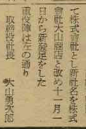 て株式會社とし新社名を株式
會社大山商店と改め十一月一
日から新發足をした
重役陣は左の通り
取締役社長
大山勇次郎